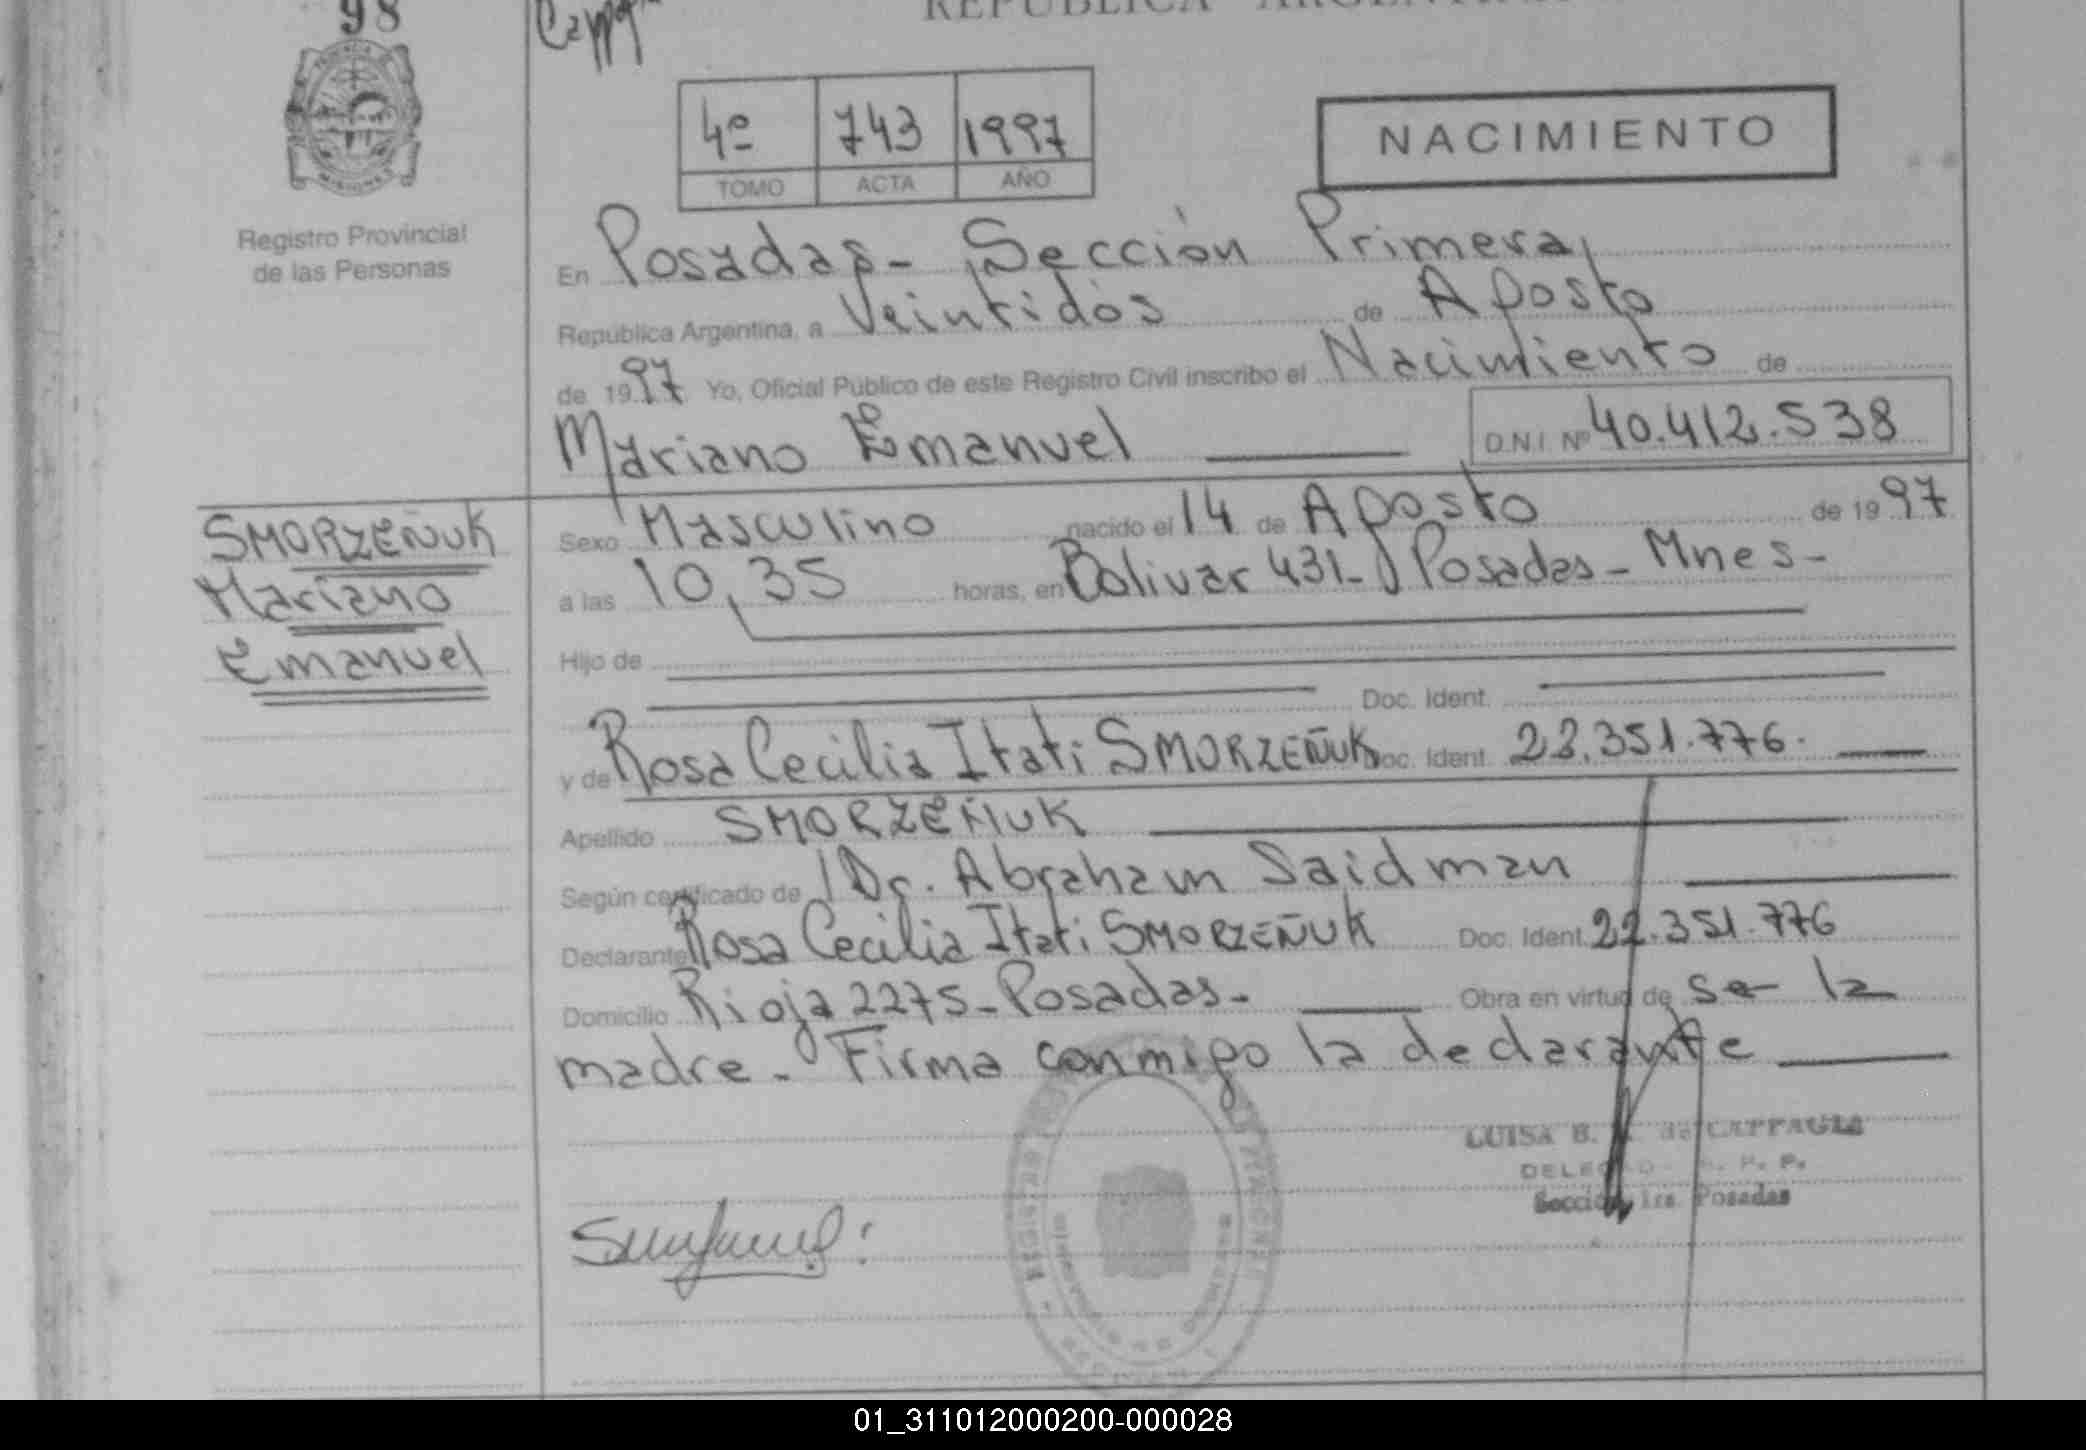 98
REPUBLICA ARGENTINA
4º 743 1997
TOMO ACTA AÑO
NACIMIENTO
Registro Provincial
de las Personas
En Posadas - Sección Primera,
República Argentina, a Veintidós de Agosto
de 1997 Yo, Oficial Público de este Registro Civil inscribo el Nacimiento de
Mariano Emanuel D.N.I. Nº 40.412.538
SMORZEÑUK
Mariano
Emanuel
Sexo Masculino nacido el 14 de Agosto de 1997
a las 10,35 horas, en Bolivar 431 - Posadas - Mnes -
Hijo de
Doc. Ident.
y de Rosa Cecilia Itati SMORZEÑUK Doc. Ident. 22.351.776.
Apellido SMORZEÑUK
Según certificado de Dr. Abraham Saidman
Declarante Rosa Cecilia Itati SMORZEÑUK Doc. Ident. 22.351.776
Domicilio Rioja 2275 - Posadas - Obra en virtud de se la
madre - Firma conmigo la declarante
LUISA B. de CAFFAGLIA
Sección 1ra. Posadas
01_311012000200-000028